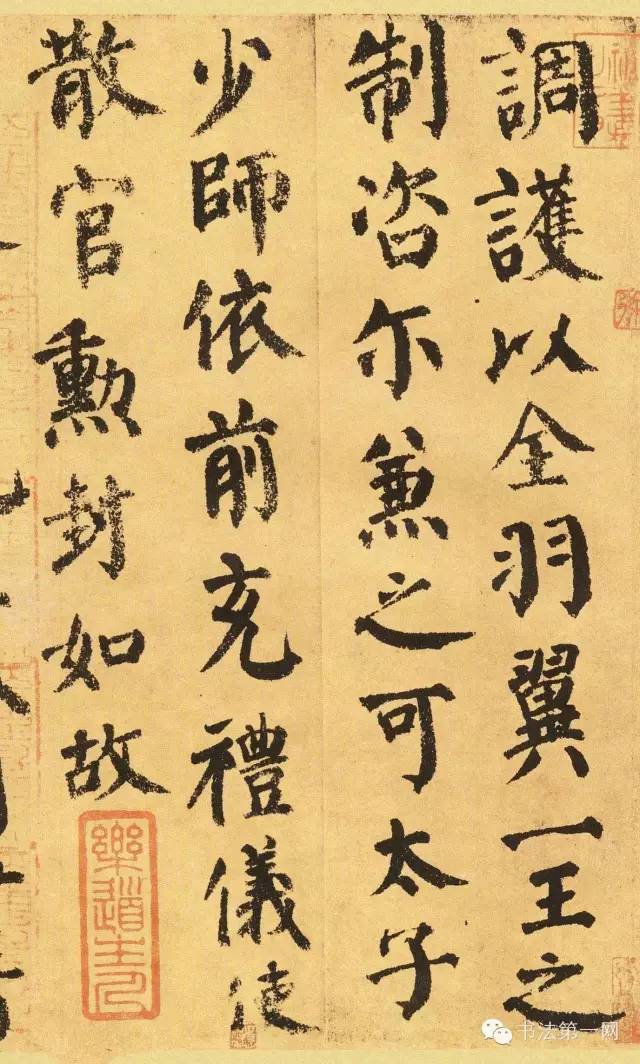 調護以全羽翼一王之
制咨尔兼之可太子
少師依前充禮儀使
散官勲封如故
樂道主人
书法第一网